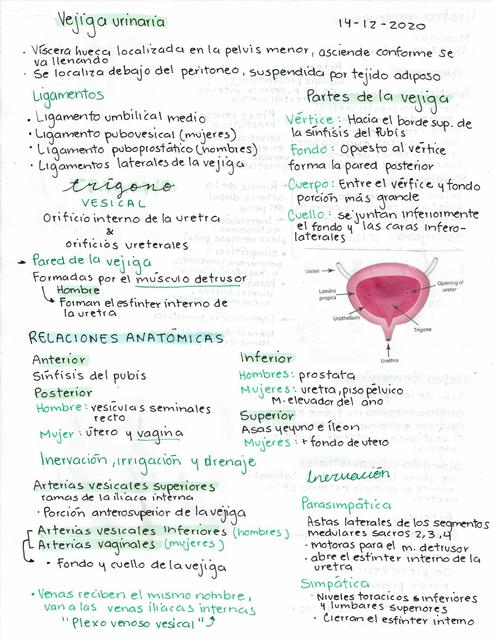 Vejiga urinaria
14-12-2020
· Víscera hueca localizada en la pelvis menor, asciende conforme se
va llenando
· Se localiza debajo del peritoneo, suspendida por tejido adiposo
Ligamentos
· Ligamento umbilical medio
· Ligamento pubovesical (mujeres)
· Ligamento puboprostático (hombres)
· Ligamentos laterales de la vejiga
Partes de la vejiga
Vértice: Hacia el borde sup. de
la sínfisis del Pubis
Fondo: Opuesto al vértice
forma la pared posterior
Cuerpo: Entre el vértice y fondo
porción más grande
Cuello: se juntan inferiormente
el fondo y las caras infero-
laterales
trígono
VESICAL
Orificio interno de la uretra
&
orificios ureterales
Pared de la vejiga
Formadas por el músculo detrusor
Hombre
Forman el esfinter interno de
la uretra
Ureter
Lamina
propria
Urothelium
Opening of
ureter
Trigone
Urethra
RELACIONES ANATÓMICAS
Anterior
Sínfisis del pubis
Posterior
Hombre: vesículas seminales
recto
Mujer: útero y vagina
Inferior
Hombres: prostata
Mujeres: uretra, piso pélvico
M. elevador del ano
Superior
Asas yeyuno e íleon
Mujeres: + fondo de utero
Inervación, irrigación y drenaje
Arterias vesicales superiores
ramas de la ilíaca interna
· Porción anterosuperior de la vejiga
Arterias vesicales inferiores (hombres)
Arterias vaginales (mujeres)
· Fondo y cuello de la vejiga
· Venas reciben el mismo nombre,
van a las venas ilíacas internas
"Plexo venoso vesical"
Inervación
Parasimpática
Astas laterales de los segmentos
medulares sacros 2, 3, 4
· motoras para el m. detrusor
· abre el esfinter interno de la
uretra
Simpática
· Niveles toracicos inferiores
y lumbares superiores
· Cierran el esfinter interno